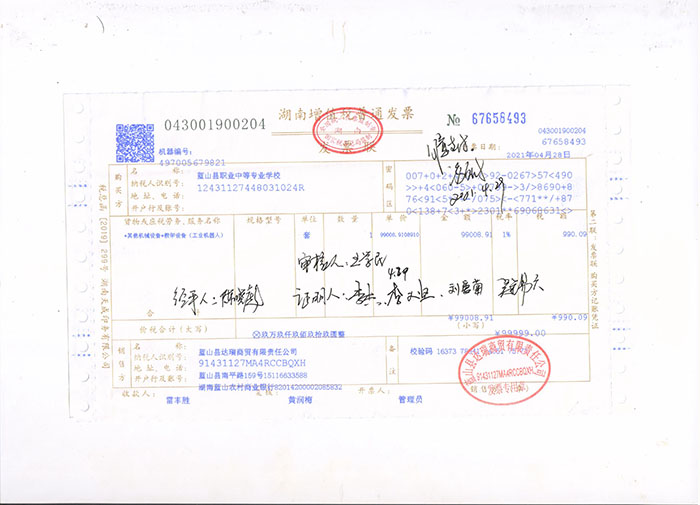 湖南增值税普通发票
043001900204
№ 67658493
043001900204
67658493
机器编号:
497005679821
开票日期:
2021年04月28日
购买方
名 称:
蓝山县职业中等专业学校
纳税人识别号:
12431127448031024R
地 址、电 话:
开户行及账号:
密码区
审核人:
4.29
2021.4.29
货物或应税劳务、服务名称
规格型号
单位
数 量
单 价
金 额
税率
税 额
*其他机械设备*教学设备(工业机器人)
套
1
99008.9108910
99008.91
1%
990.09
经手人:
证明人:
合 计
¥99008.91
¥990.09
价税合计(大写)
ⓧ玖万玖仟玖佰玖拾玖圆整
(小写)
¥99999.00
销售方
名 称:
蓝山县达瑞商贸有限责任公司
纳税人识别号:
91431127MA4RCCBQXH
地 址、电 话:
蓝山县南平路159号15116633588
开户行及账号:
湖南蓝山农村商业银行82014200002085832
备注
校验码 16373
蓝山县达瑞商贸有限责任公司
91431127MA4RCCBQXH
发票专用章
收款人:
雷丰胜
复核:
黄润梅
开票人:
管理员
税总函[2019]299号 湖南天成印务有限公司
第二联:发票联 购买方记账凭证